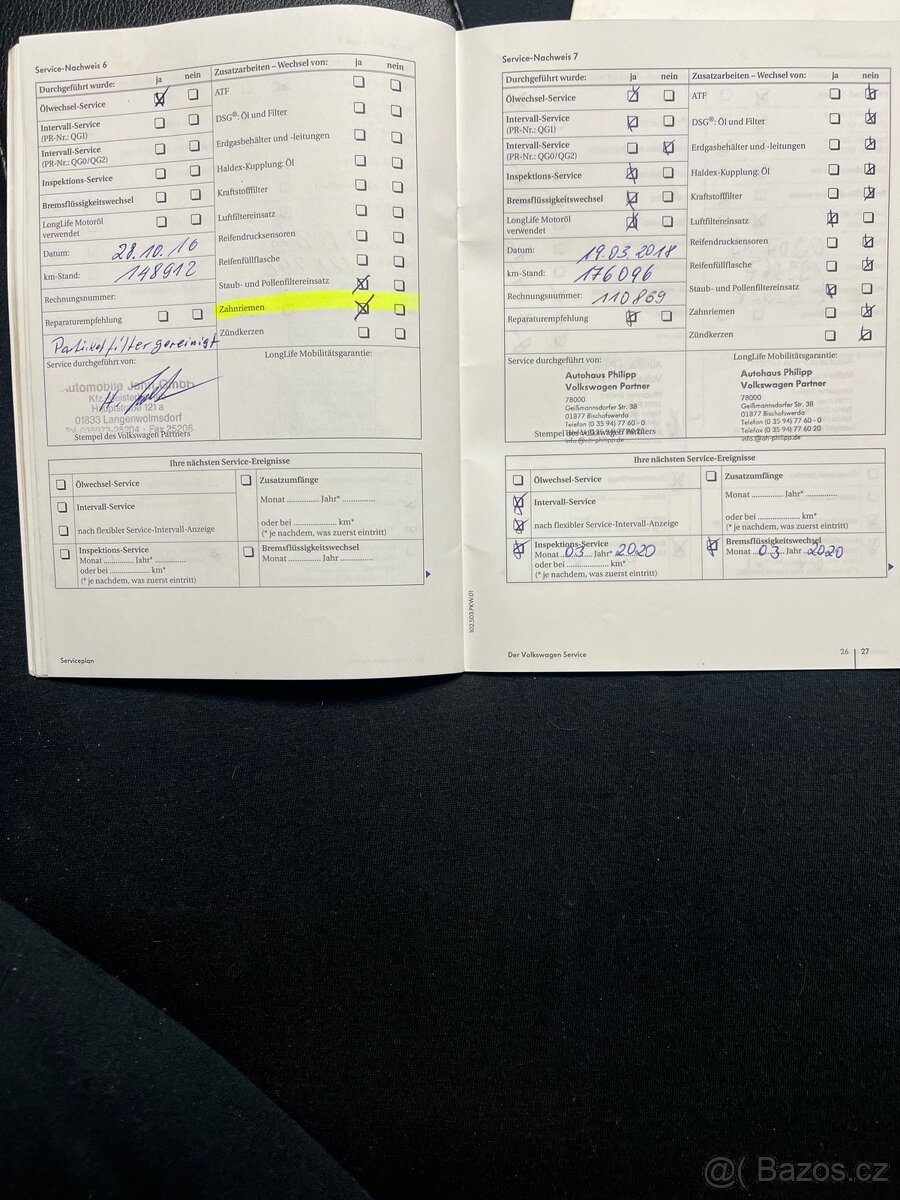 Service-Nachweis 6
Durchgeführt wurde: ja nein
Ölwechsel-Service
Intervall-Service
(PR-Nr.: QG1)
Intervall-Service
(PR-Nr.: QG0/QG2)
Inspektions-Service
Bremsflüssigkeitswechsel
LongLife Motoröl
verwendet
Datum: 28.10.16
km-Stand: 148912
Rechnungsnummer:
Reparaturempfehlung
Partikelfilter gereinigt
Service durchgeführt von:
Automobile Jann Gmbh
Hauptstraße 121 a
01833 Langenwolmsdorf
Tel. 035973-25204 · Fax 25206
Stempel des Volkswagen Partners
Zusatzarbeiten – Wechsel von: ja nein
ATF
DSG®: Öl und Filter
Erdgasbehälter und -leitungen
Haldex-Kupplung: Öl
Kraftstofffilter
Luftfiltereinsatz
Reifendrucksensoren
Reifenfüllflasche
Staub- und Pollenfiltereinsatz
Zahnriemen
Zündkerzen
LongLife Mobilitätsgarantie:
Ihre nächsten Service-Ereignisse
Ölwechsel-Service
Intervall-Service
nach flexibler Service-Intervall-Anzeige
Inspektions-Service
Monat ............. Jahr* ..............
oder bei ..................... km*
(* je nachdem, was zuerst eintritt)
Zusatzumfänge
Monat ............. Jahr* ..............
oder bei ..................... km*
(* je nachdem, was zuerst eintritt)
Bremsflüssigkeitswechsel
Monat ............. Jahr ..............
Serviceplan
Service-Nachweis 7
Durchgeführt wurde: ja nein
Ölwechsel-Service
Intervall-Service
(PR-Nr.: QG1)
Intervall-Service
(PR-Nr.: QG0/QG2)
Inspektions-Service
Bremsflüssigkeitswechsel
LongLife Motoröl
verwendet
Datum: 19.03 2018
km-Stand: 176096
Rechnungsnummer: 110869
Reparaturempfehlung
Service durchgeführt von:
Autohaus Philipp
Volkswagen Partner
78000
Geißmannsdorfer Str. 38
01877 Bischofswerda
Telefon (0 35 94) 77 60 - 0
Stempel des Volkswagen Partners
info.@ah-philipp.de
Zusatzarbeiten – Wechsel von: ja nein
ATF
DSG®: Öl und Filter
Erdgasbehälter und -leitungen
Haldex-Kupplung: Öl
Kraftstofffilter
Luftfiltereinsatz
Reifendrucksensoren
Reifenfüllflasche
Staub- und Pollenfiltereinsatz
Zahnriemen
Zündkerzen
LongLife Mobilitätsgarantie:
Autohaus Philipp
Volkswagen Partner
78000
Geißmannsdorfer Str. 38
01877 Bischofswerda
Telefon (0 35 94) 77 60 - 0
Telefax (0 35 94) 77 60 20
info.@ah-philipp.de
Ihre nächsten Service-Ereignisse
Ölwechsel-Service
Intervall-Service
nach flexibler Service-Intervall-Anzeige
Inspektions-Service
Monat 03 Jahr* 2020
oder bei ..................... km*
(* je nachdem, was zuerst eintritt)
Zusatzumfänge
Monat ............. Jahr* ..............
oder bei ..................... km*
(* je nachdem, was zuerst eintritt)
Bremsflüssigkeitswechsel
Monat 03 Jahr 2020
102.5D3.PKW.01
Der Volkswagen Service
26 | 27
@( Bazos.cz